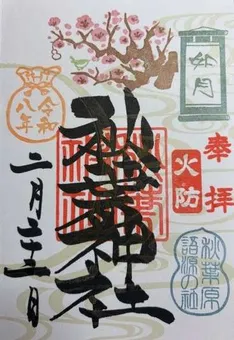 如月
奉拝
火防
秋葉原
語源の社
秋葉神社
令和
八年
二月 日